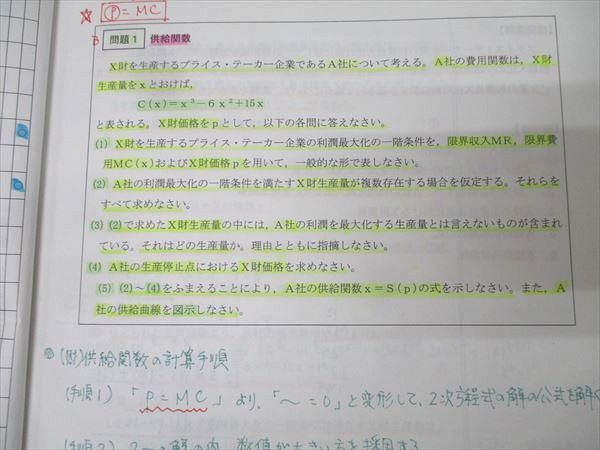 ☆ ⓟ=MC
B 問題1 供給関数
X財を生産するプライス・テーカー企業であるA社について考える。A社の費用関数は，X財
生産量をxとおけば，
C(x)=x³−6x²+15x
と表される。X財価格をpとして，以下の各問に答えなさい。
(1) X財を生産するプライス・テーカー企業の利潤最大化の一階条件を，限界収入MR，限界費
用MC(x)およびX財価格pを用いて，一般的な形で表しなさい。
(2) A社の利潤最大化の一階条件を満たすX財生産量が複数存在する場合を仮定する。それらを
すべて求めなさい。
(3) (2)で求めたX財生産量の中には，A社の利潤を最大化する生産量とは言えないものが含まれ
ている。それはどの生産量か。理由とともに指摘しなさい。
(4) A社の生産停止点におけるX財価格を求めなさい。
(5) (2)～(4)をふまえることにより，A社の供給関数x=S(p)の式を示しなさい。また，A
社の供給曲線を図示しなさい。
(財)供給関数の計算手順
(手順1) 「P=MC」より、「～=0」と変形して、2次方程式の解の公式を解く
(手順2) 2つの解の内、数値が大きい方を採用する